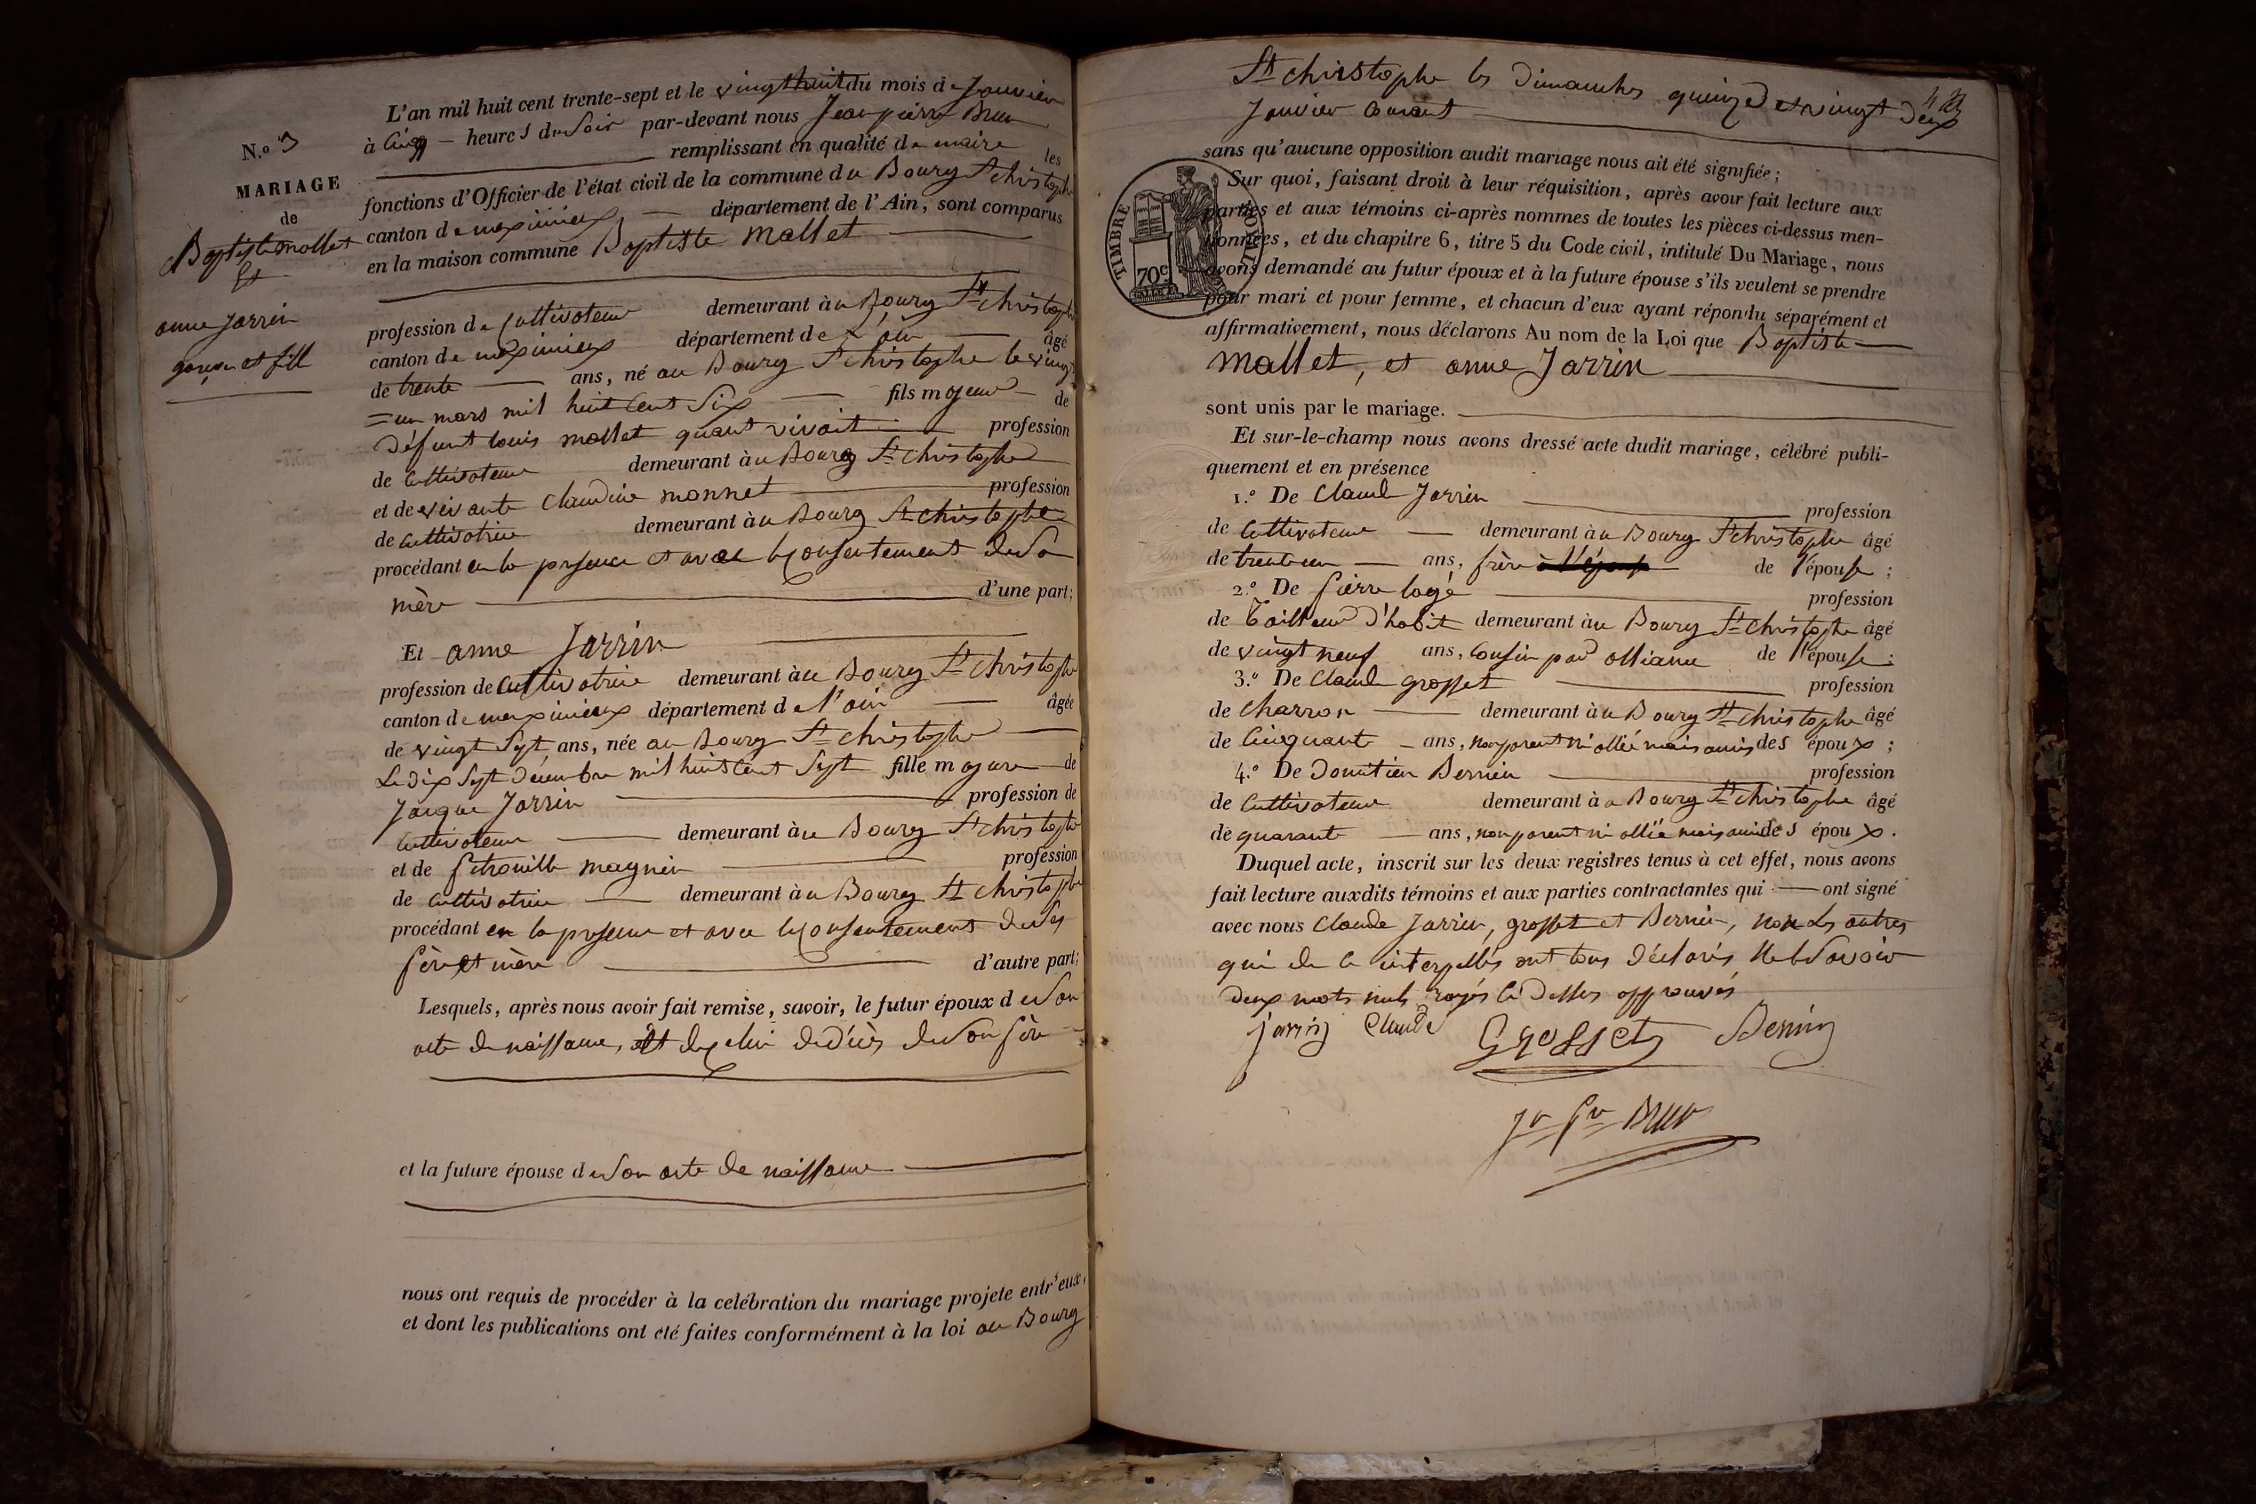 N.º 3
MARIAGE
de
Baptiste mallet
Et
anne Jarrin
garçon et fille
L'an mil huit cent trente-sept et le vingthuit du mois de Janvier
à Cinq heures du Soir par-devant nous Jean pierre Brun
remplissant en qualité de maire les
fonctions d'Officier de l'état civil de la commune du Bourg St christophe
canton de meximieux département de l'Ain, sont comparus
en la maison commune Baptiste Mallet
profession de Cultivateur demeurant à u Bourg St christophe
canton de meximieux département de L'ain âgé
de trente ans, né au Bourg St christophe le vingt
=un mars mil huit Cent Six fils majeur de
défunt louis mallet quant vivait profession
de Cultivateur demeurant à u Bourg St christophe
et de vivante Claudine monnet profession
de Cultivatrice demeurant à u Bourg St christophe
procédant en la presence et avec le Consentement de Sa
mère d'une part;
Et anne Jarrin
profession de Cultivatrice demeurant à u Bourg St christophe
canton de meximieux département de l'ain âgée
de vingt Sept ans, née au Bourg St christophe
Le dix Sept décembre mil huit Cent Sept fille majeure de
Jacque Jarrin profession de
Cultivateur demeurant à u Bourg St christophe
et de Pétronille magnin profession
de Cultivatrice demeurant à u Bourg St christophe
procédant en la presence et avec le Consentement de Ses
Père et mère d'autre part;
Lesquels, après nous avoir fait remise, savoir, le futur époux de Son
acte de naissance, et de celui de décès de Son Père
et la future épouse de Son acte de naissance
nous ont requis de procéder à la celébration du mariage projete entr'eux,
et dont les publications ont été faites conformément à la loi au Bourg
St christophe les Dimanches quinze et vingt deux
Janvier Courant
TIMBRE ROYAL
70c
sans qu'aucune opposition audit mariage nous ait été signifiée;
Sur quoi, faisant droit à leur réquisition, après avoir fait lecture aux
parties et aux témoins ci-après nommes de toutes les pièces ci-dessus men-
tionnées, et du chapitre 6, titre 5 du Code civil, intitulé Du Mariage, nous
avons demandé au futur époux et à la future épouse s'ils veulent se prendre
pour mari et pour femme, et chacun d'eux ayant répondu séparément et
affirmativement, nous déclarons Au nom de la Loi que Baptiste
Mallet, et anne Jarrin
sont unis par le mariage.
Et sur-le-champ nous avons dressé acte dudit mariage, célébré publi-
quement et en présence
1.º De Claude Jarrin profession
de Cultivateur demeurant à u Bourg St christophe âgé
de trente un ans, frère à l'épouse de l'épouse;
2.º De Pierre logé profession
de Tailleur d'habit demeurant à u Bourg St christophe âgé
de vingt neuf ans, Cousin par alliance de l'épouse;
3.º De Claude grosset profession
de Charron demeurant à u Bourg St christophe âgé
de Cinquante ans, non parent ni allié mais ami des époux;
4.º De Domitien Bernin profession
de Cultivateur demeurant à u Bourg St christophe âgé
de quarante ans, non parent ni allié mais ami des époux.
Duquel acte, inscrit sur les deux registres tenus à cet effet, nous avons
fait lecture auxdits témoins et aux parties contractantes qui ont signé
avec nous Claude Jarrin, grosset et Bernin, non Les autres
qui de ce interpellés ont tous déclarés ne le Savoir
deux mots nuls rayés Ci dessus approuvés
jarrin Claude Grosset Bernin
Jn Pre Brun